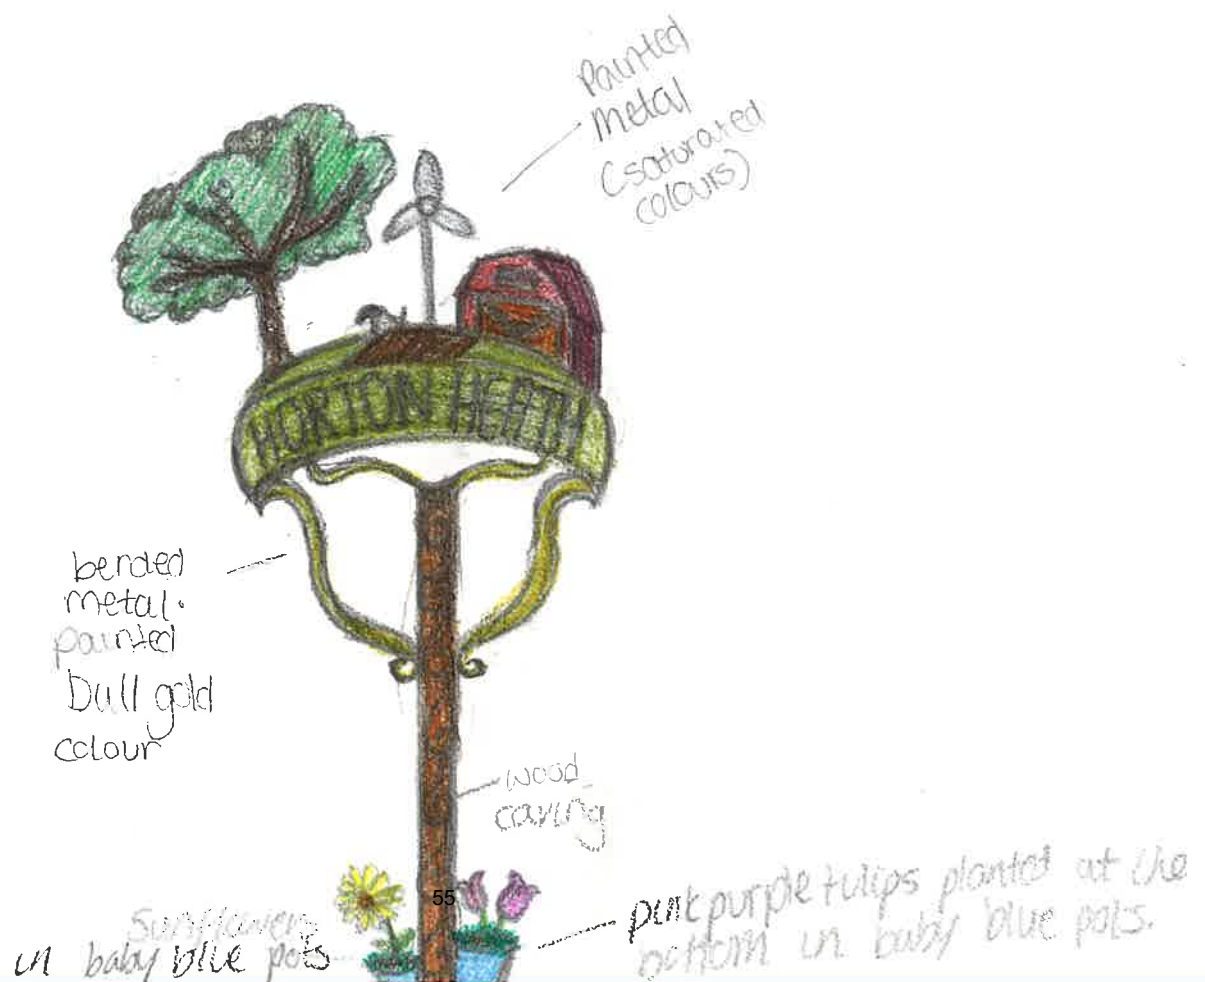 Painted
metal
(saturated
colours)
HORTON HEATH
bended
metal.
painted
Dull gold
colour
wood
carving
55
Sunflowers
in baby blue pots
pink purple tulips planted at the
bottom in baby blue pots.